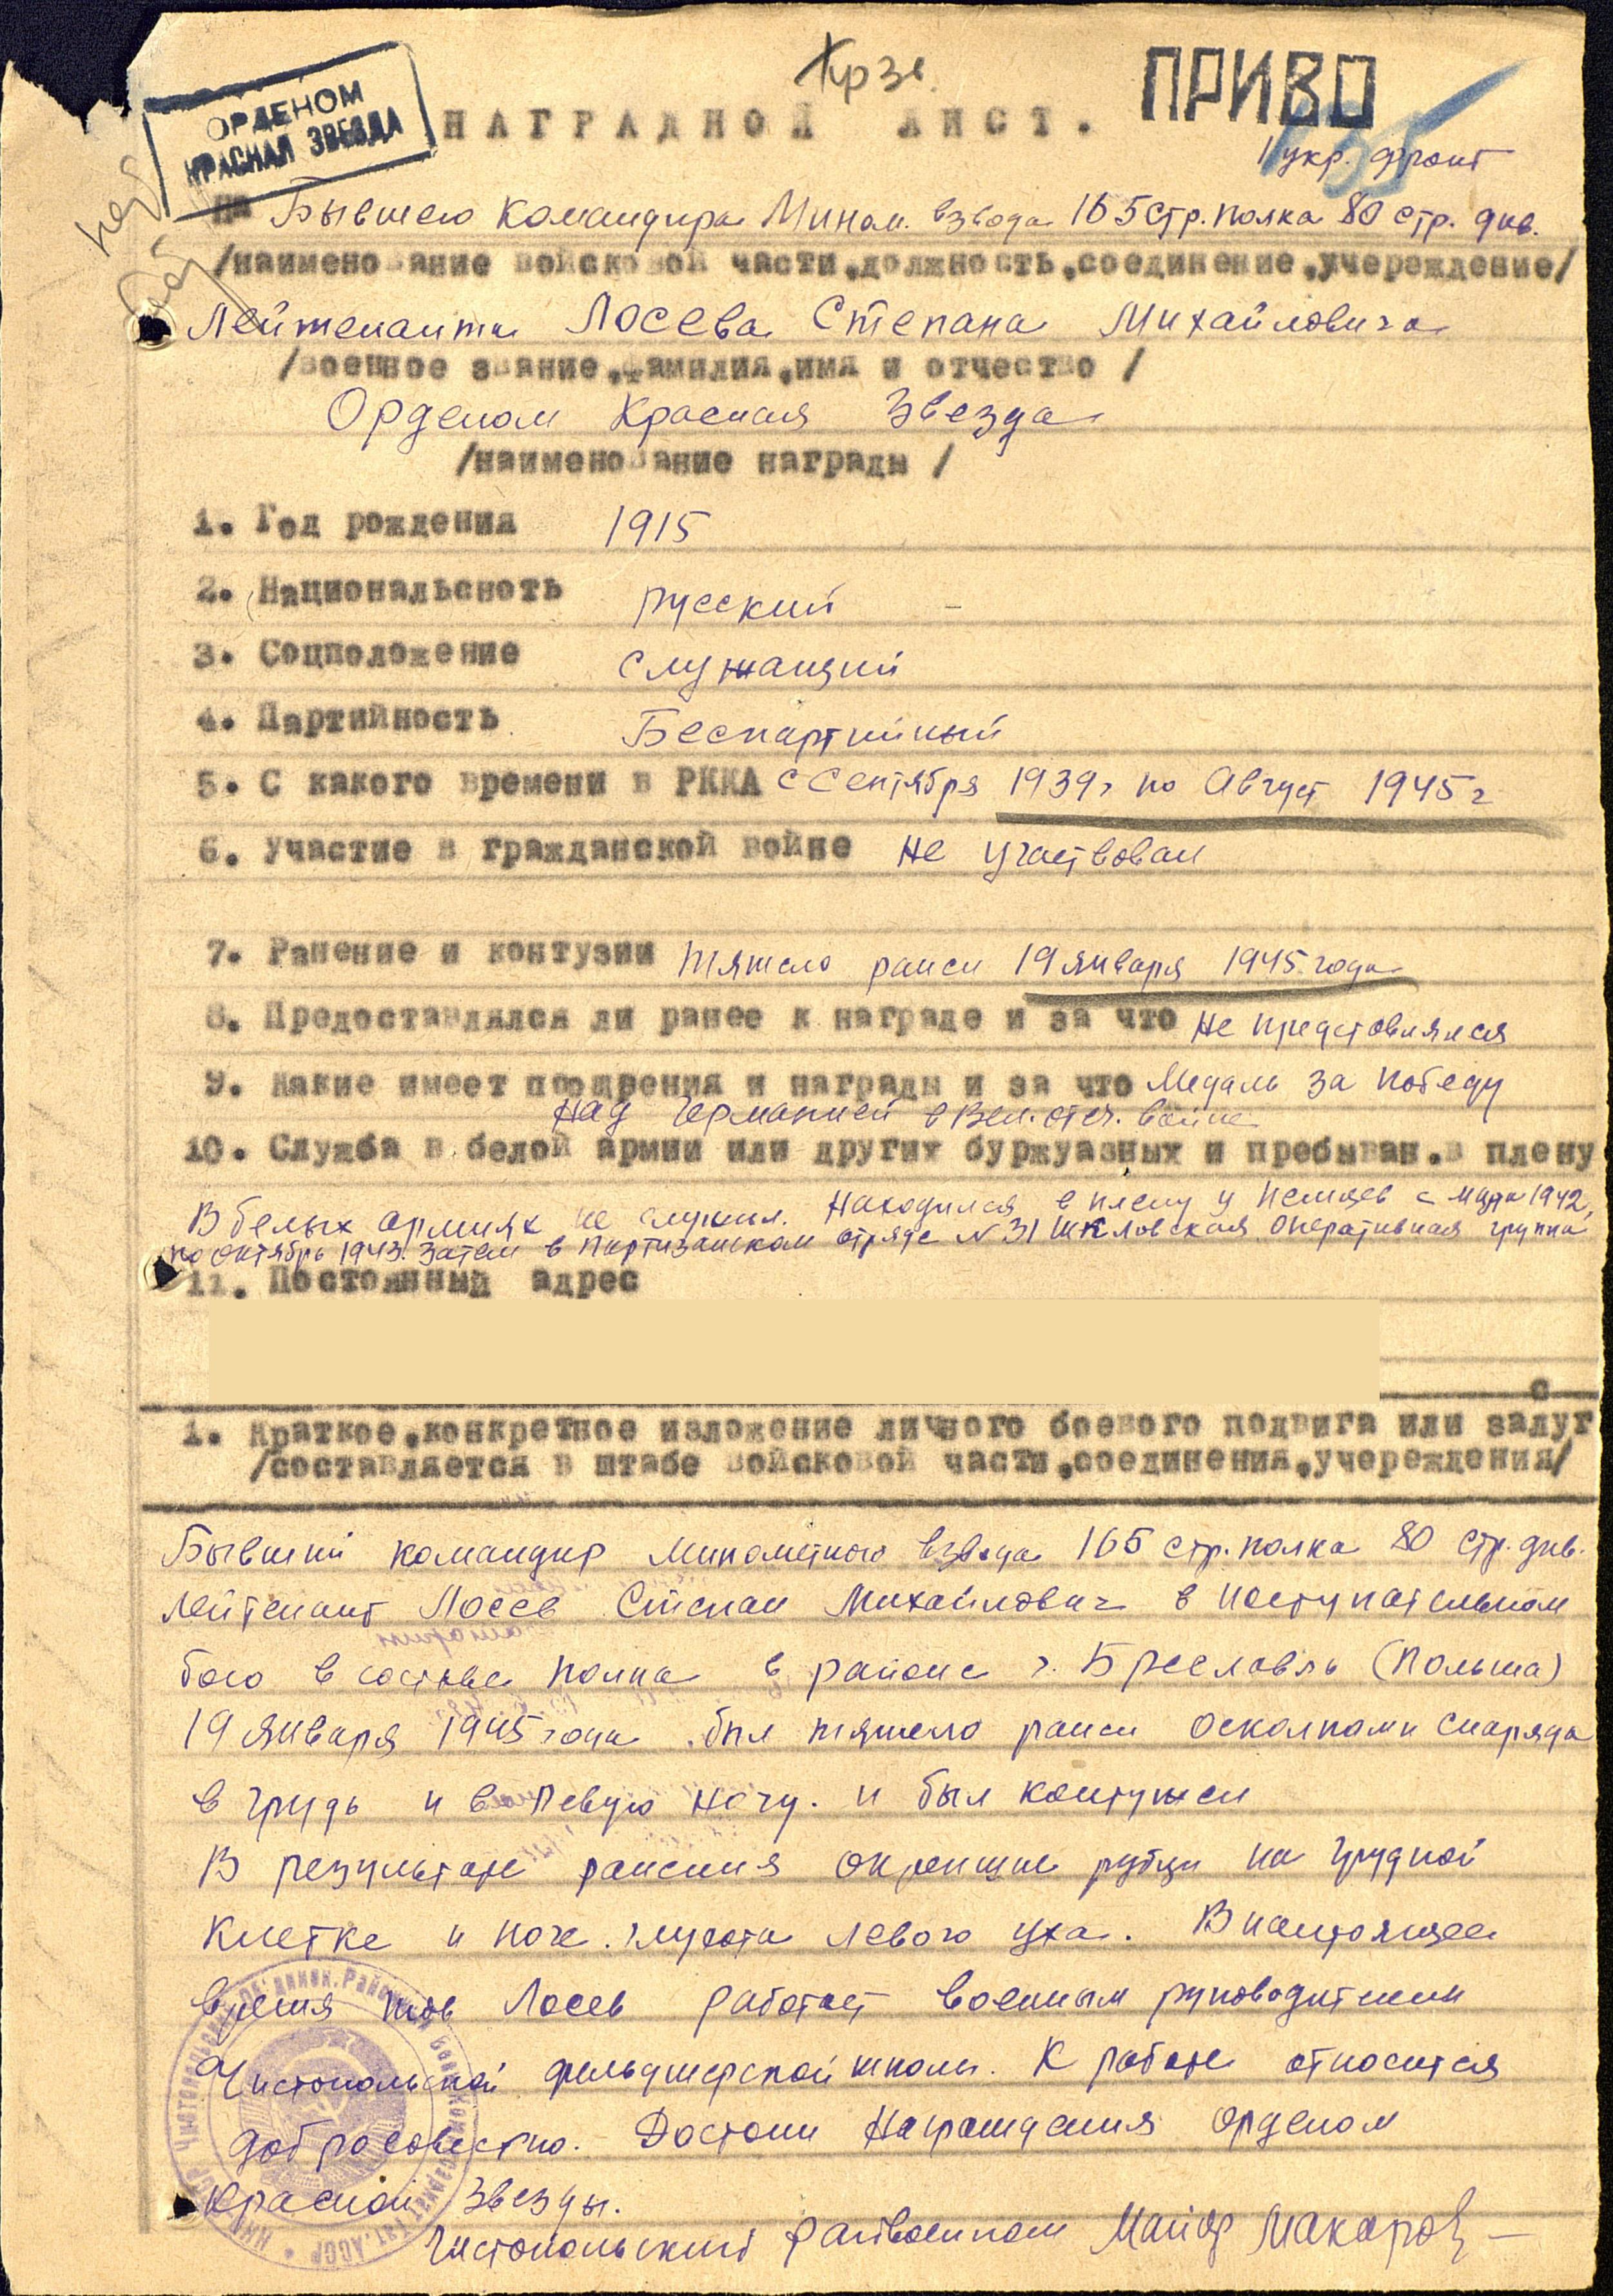 ОРДЕНОМ
КРАСНАЯ ЗВЕЗДА
ПРИВО
НАГРАДНОЙ ЛИСТ.
1 укр. фронт
на Бывшего командира Мином. взвода 165 стр. полка 80 стр. див.
/наименование войсковой части,должность,соединение,учереждение/
Лейтенанта Лосева Степана Михайловича
/военное звание,фамилия,имя и отчество /
Орденом Красная Звезда
/наименование награды /
1. Год рождения 1915
2. Национальсноть русский
3. Соцположение служащий
4. Партийность Беспартийный
5. С какого времени в РККА с Сентября 1939г по Август 1945г
6. Участие в гражданской войне не участвовал
7. Ранение и контузии тяжело ранен 19 января 1945 года
8. Предоставлялся ли ранее к награде и за что не представлялся
9. Какие имеет поощрения и награды и за что Медаль за победу
над Германией в Вел. отеч. войне
10. Служба в белой армии или других буржуазных и пребыван.в плену
В белых армиях не служил. Находился в плену у немцев с 1942
по октябрь 1943. Затем в Партизанском отряде N 31 Шкловская оперативная группа
11. Постоянный адрес
с
1. Краткое,конкретное изложение личного боевого подвига или залуг
/составляется в штабе войсковой части,соединения,учереждения/
Бывший командир Минометного взвода 165 стр. полка 80 стр. див.
лейтенант Лосев Степан Михайлович в наступательном
бою в составе полка в районе г. Бреславль (Польша)
19 января 1945 года был тяжело ранен осколками снаряда
в грудь и в левую ногу. и был контужен
В результате ранения окрепшие рубцы на грудной
клетке и ноге. глухота левого уха. В настоящее
время тов Лосев работает военным руководителем
Чистопольской фельдшерской школы. К работе относится
добросовестно. Достоин награждения орденом
Красной Звезды.
Чистопольский райвоенком Майор Макаров